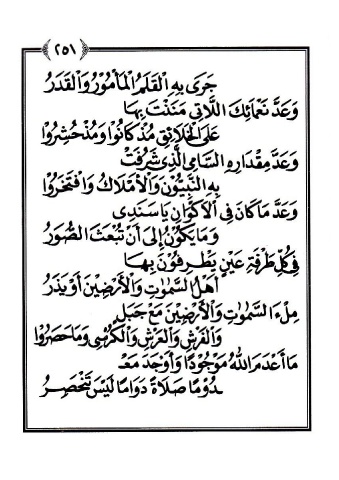 ٢٥١
جَرَى بِهِ الْقَلَمُ الْمَأْمُورُ وَالْقَدَرُ
وَعَدَّ نَعْمَائِكَ اللَّاتِي مَنَنْتَ بِهَا
عَلَى الْخَلَائِقِ مُذْ كَانُوا وَمُذْ حُشِرُوا
وَعَدَّ مِقْدَارِهِ السَّامِي الَّذِي شَرُفَتْ
بِهِ النَّبِيُّونَ وَالْأَمْلَاكُ وَافْتَخَرُوا
وَعَدَّ مَا كَانَ فِي الْأَكْوَانِ يَا سَنَدِي
وَمَا يَكُونُ إِلَى أَنْ تُبْعَثَ الصُّوَرُ
فِي كُلِّ طَرْفَةِ عَيْنٍ يَطْرِفُونَ بِهَا
أَهْلُ السَّمٰوَاتِ وَالْأَرْضِينَ أَوْ يَذَرُ
مِلْءَ السَّمٰوَاتِ وَالْأَرْضِينَ مَعَ جَبَلٍ
وَالْفَرْشِ وَالْعَرْشِ وَالْكُرْسِي وَمَا حَصَرُوا
مَا أَعْدَمَ اللهُ مَوْجُودًا وَأَوْجَدَ مَعْـ
ـدُومًا صَلَاةً دَوَامًا لَيْسَ تَنْحَصِرُ